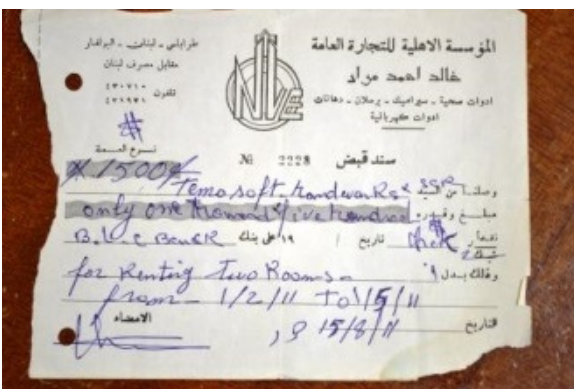 المؤسسة الاهلية للتجارة العامة
خالد احمد مراد
ادوات صحية - سيراميك - برسلان - دهانات
ادوات كهربائية
طرابلس - لبنان - البولفار
مقابل مصرف لبنان
تلفون ٤٣٠٧١٠
٤٣١٩٣١
NTC
#
نوع العملة
سند قبض
№ 2228
# 1500 #
وصلنا من السيد Temo soft. handworks
مبلغ وقدره only one thousand & five hundred
نقداً
شيك
تاريخ / ١٩ على بنك B.L.C Bank
وذلك بدل for Renting Two Rooms
from 1/2/11 To 1/5/11
التاريخ 15/8/11
الامضاء